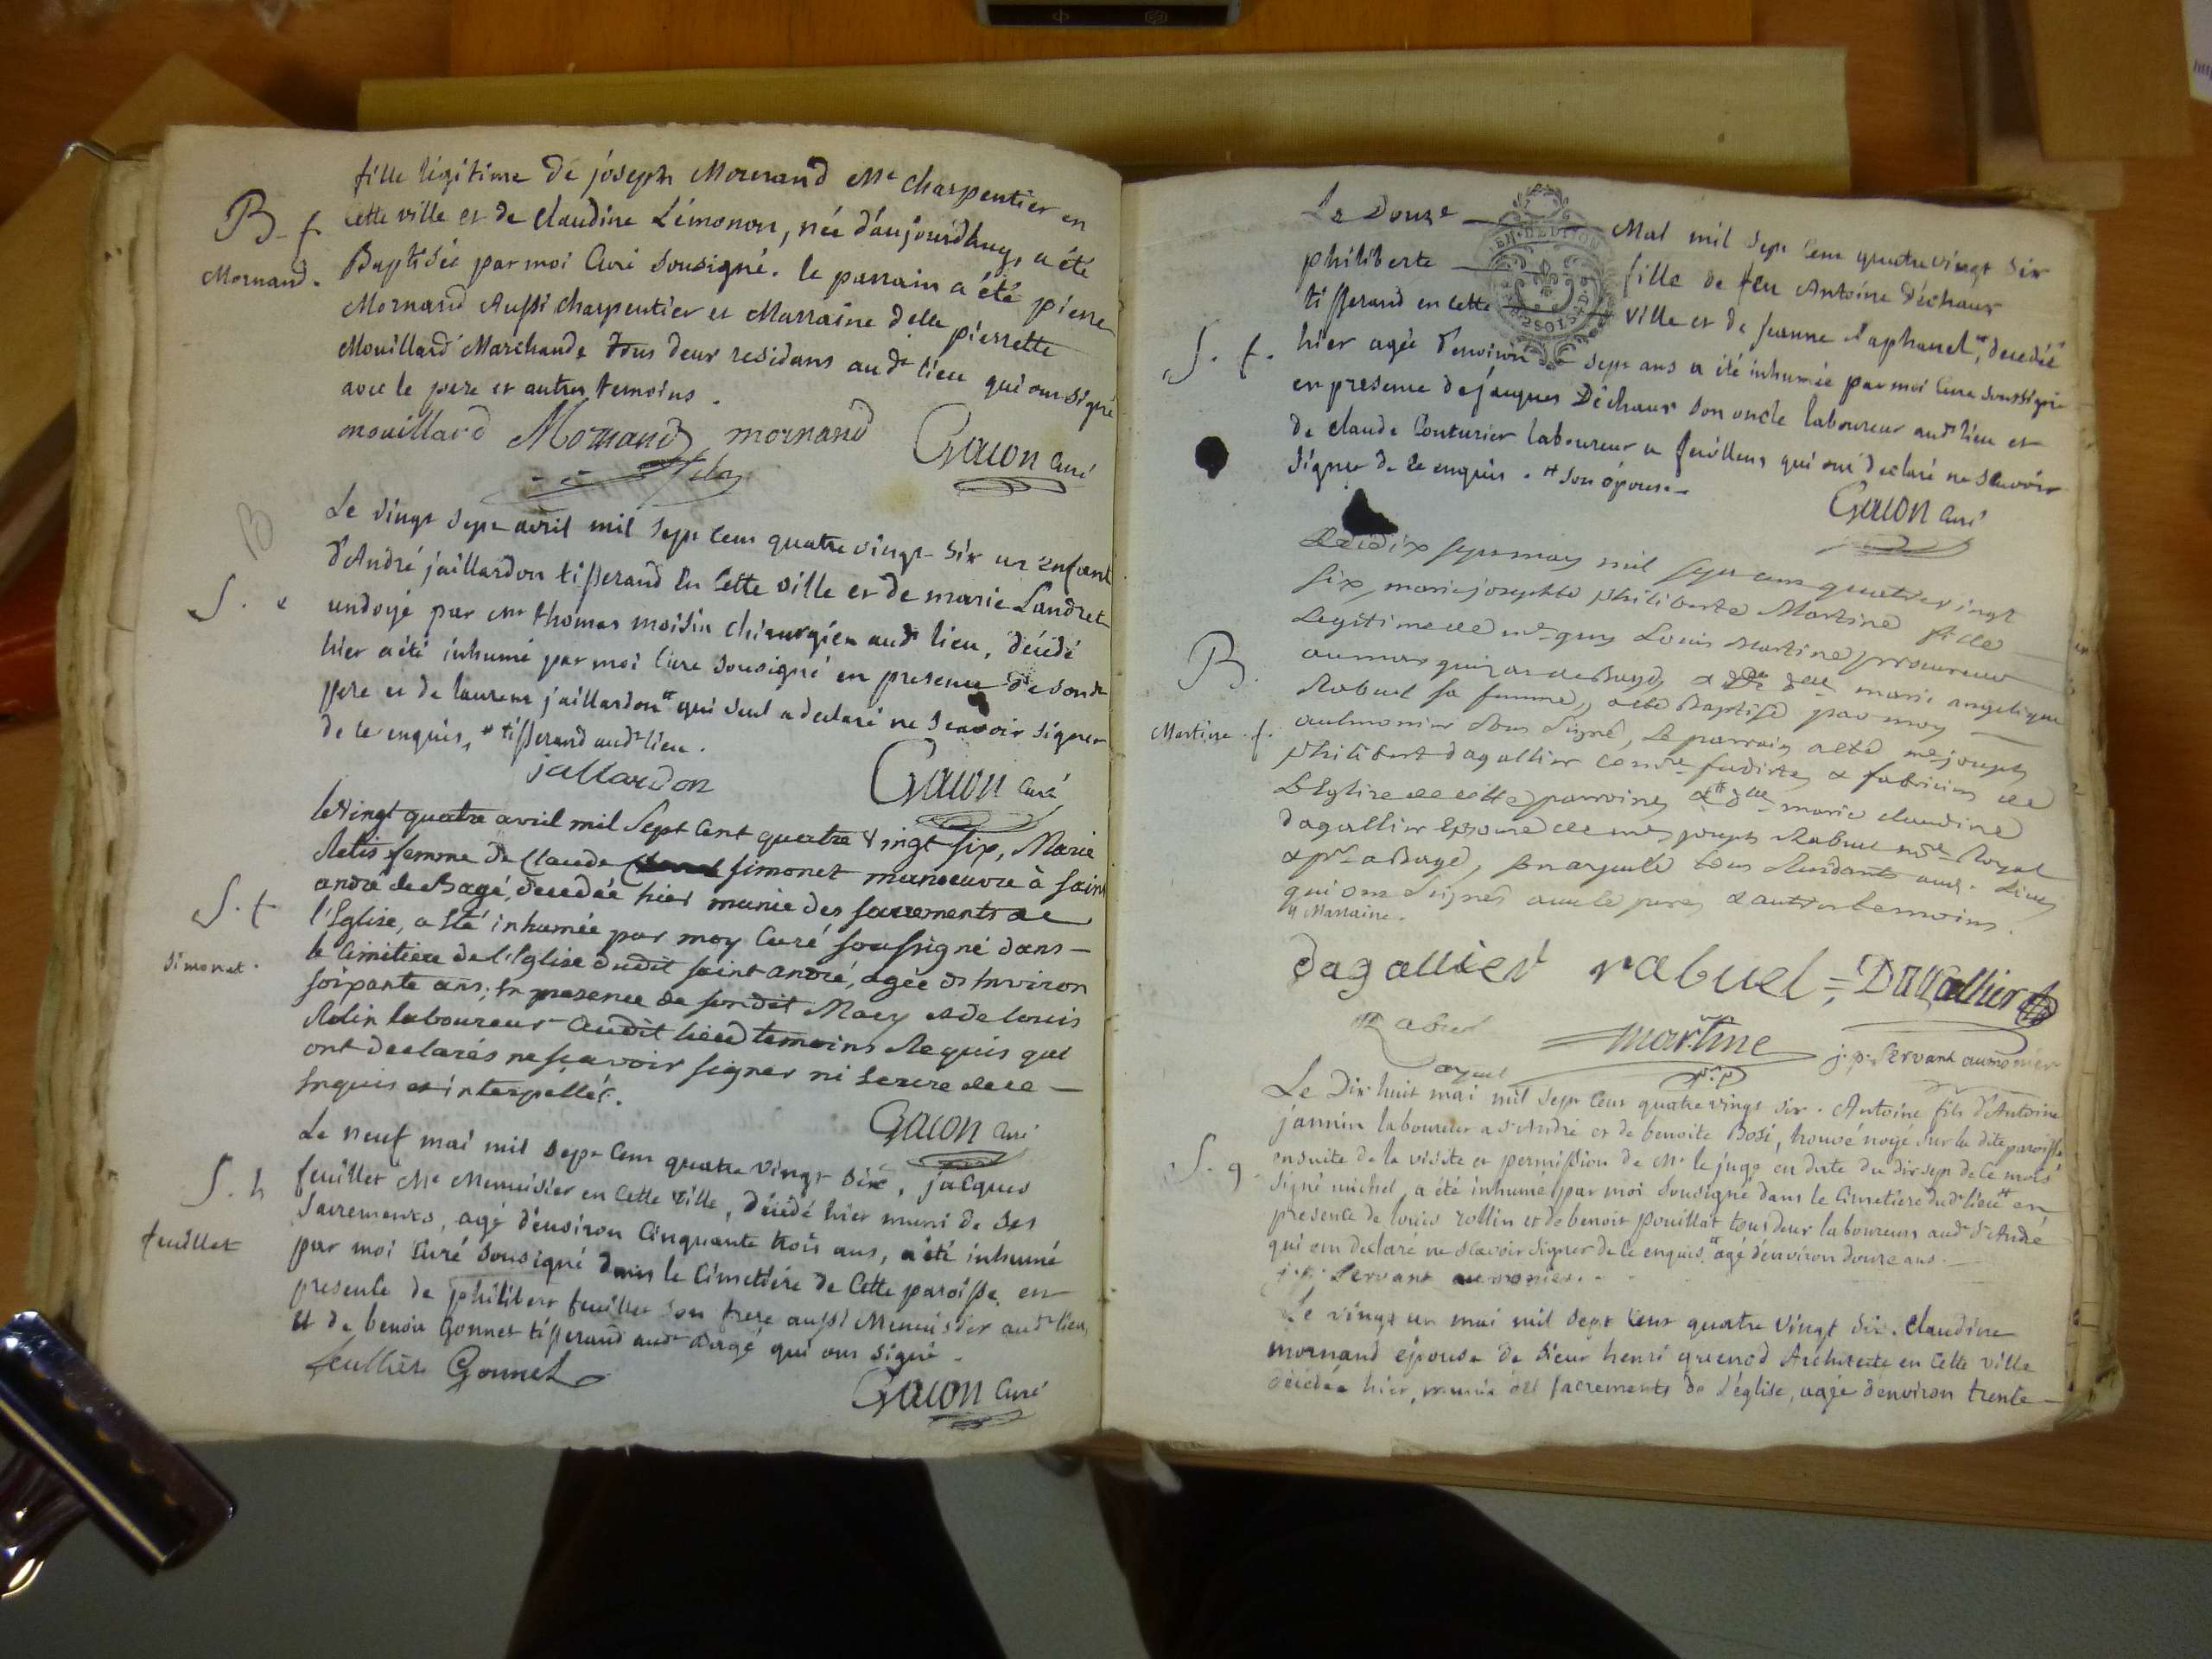 fille légitime de joseph Mornand Me charpentier en
B. f.
Mornand.
cette ville et de claudine Lémonon, née d'aujourdhuy, a été
Baptisée par moi Curé sousigné. le parrain a été pierre
Mornand Aussi charpentier et Marraine delle pierrette
Mouillard Marchande tous deux residans audt lieu qui ont signé
avec le pere et autres temoins.
mouillard Mornand mornand
Gacon Curé
B
S. e
Le vingt sept avril mil sept cent quatre vingt-six un enfant
d'André jaillardon tisserand En Cette ville et de marie Landret
undoyé par mr thomas moisin chirurgien audt lieu, décédé
hier a été inhumé par moi Curé sousigné en presence de sondt
pere et de laurent jaillardon # qui seul a declaré ne scavoir signer
de ce enquis, # tisserand audt lieu.
jallardon
Gacon Curé
S. f
Simonet.
le vingt quatre avril mil Sept Cent quatre vingt six, Marie
femme de Claude simonet manoeuvre à saint
andré de Bagé, decedée hier munie des sacrements de
l'Eglise, a Eté inhumée par moy Curé soussigné dans
le Cimitiere de l'Eglise dudit saint andré, agée d'Environ
soixante ans; En presence de sondit Mary et de louis
Rolin laboureur audit lieu temoins Requis qui
ont declarés ne sçavoir signer ni Ecrire de ce
Enquis et interpellés.
Gacon Curé
S. h
feuillet
Le neuf mai mil sept Cent quatre vingt six, jacques
feuillet Me Menuisier en Cette ville, décédé hier muni de ses
Sacrements, agé d'environ Cinquante trois ans, a été inhumé
par moi Curé Sousigné dans le Cimetiere de Cette paroisse en
presence de philibert feuillet son frere aussi Menuisier audt lieu,
et de benoit Gonnet tisserand audt Bagé qui ont signé.
feullièt Gonnet
Gacon Curé
Le Douze Mai mil sept Cent quatre vingt six
philiberte fille de feu Antoine Déchaux
tisserand en Cette ville et de jeanne Raphanel #, decedée
S. f.
hier agée d'environ sept ans a été inhumée par moi Curé soussigné
en presence de jacques Déchaux son oncle laboureur audt lieu et
de claude Couturier laboureur a feuillens qui ont declaré ne sçavoir
signer de ce enquis. # son épouse
Gacon Curé
B.
Martine. f.
Le dix sept may mil sept cens quatre vingt
six, marie josephte philiberte Martine fille
Legitime de me guy Louis Martine procureur
au marquizat de Baugé, & delle marie angelique
Rabuel sa femme, a été Baptisé par moy
aulmonier sous signé, Le parrain a été me joseph
philibert dagallier & fabricien de
L'Eglise de cette paroisse & # delle marie claudine
dagallier Epouse de me joseph Rabuel Royal
qui ont signés avec le pere & autres temoins.
# Marraine.
dagallier rabuel = Dagallier
Rabuel
martine
j. p. Servant aumonier
S. g.
Le Dix huit mai mil sept Cent quatre vingt six. Antoine fils d'Antoine
jannin laboureur a St André et de benoite Bosi, trouvé noyé sur la dite paroisse
ensuite de la visite et permission de Mr le juge en date du dix sept de Ce mois
signé michel, a été inhumé par moi Sousigné dans le Cimetiere dudt lieu # en
presence de louis rollin et de benoit pouillat tous deux laboureurs audt St André
qui ont declaré ne scavoir signer de Ce enquis. # agé d'environ douze ans.
j. p. Servant aumonier.
Le vingt un mai mil sept Cent quatre vingt six. claudine
mornand épouse de sieur henri Architecte en Cette ville
décédée hier, munie des sacrements de l'église, agée d'environ trente